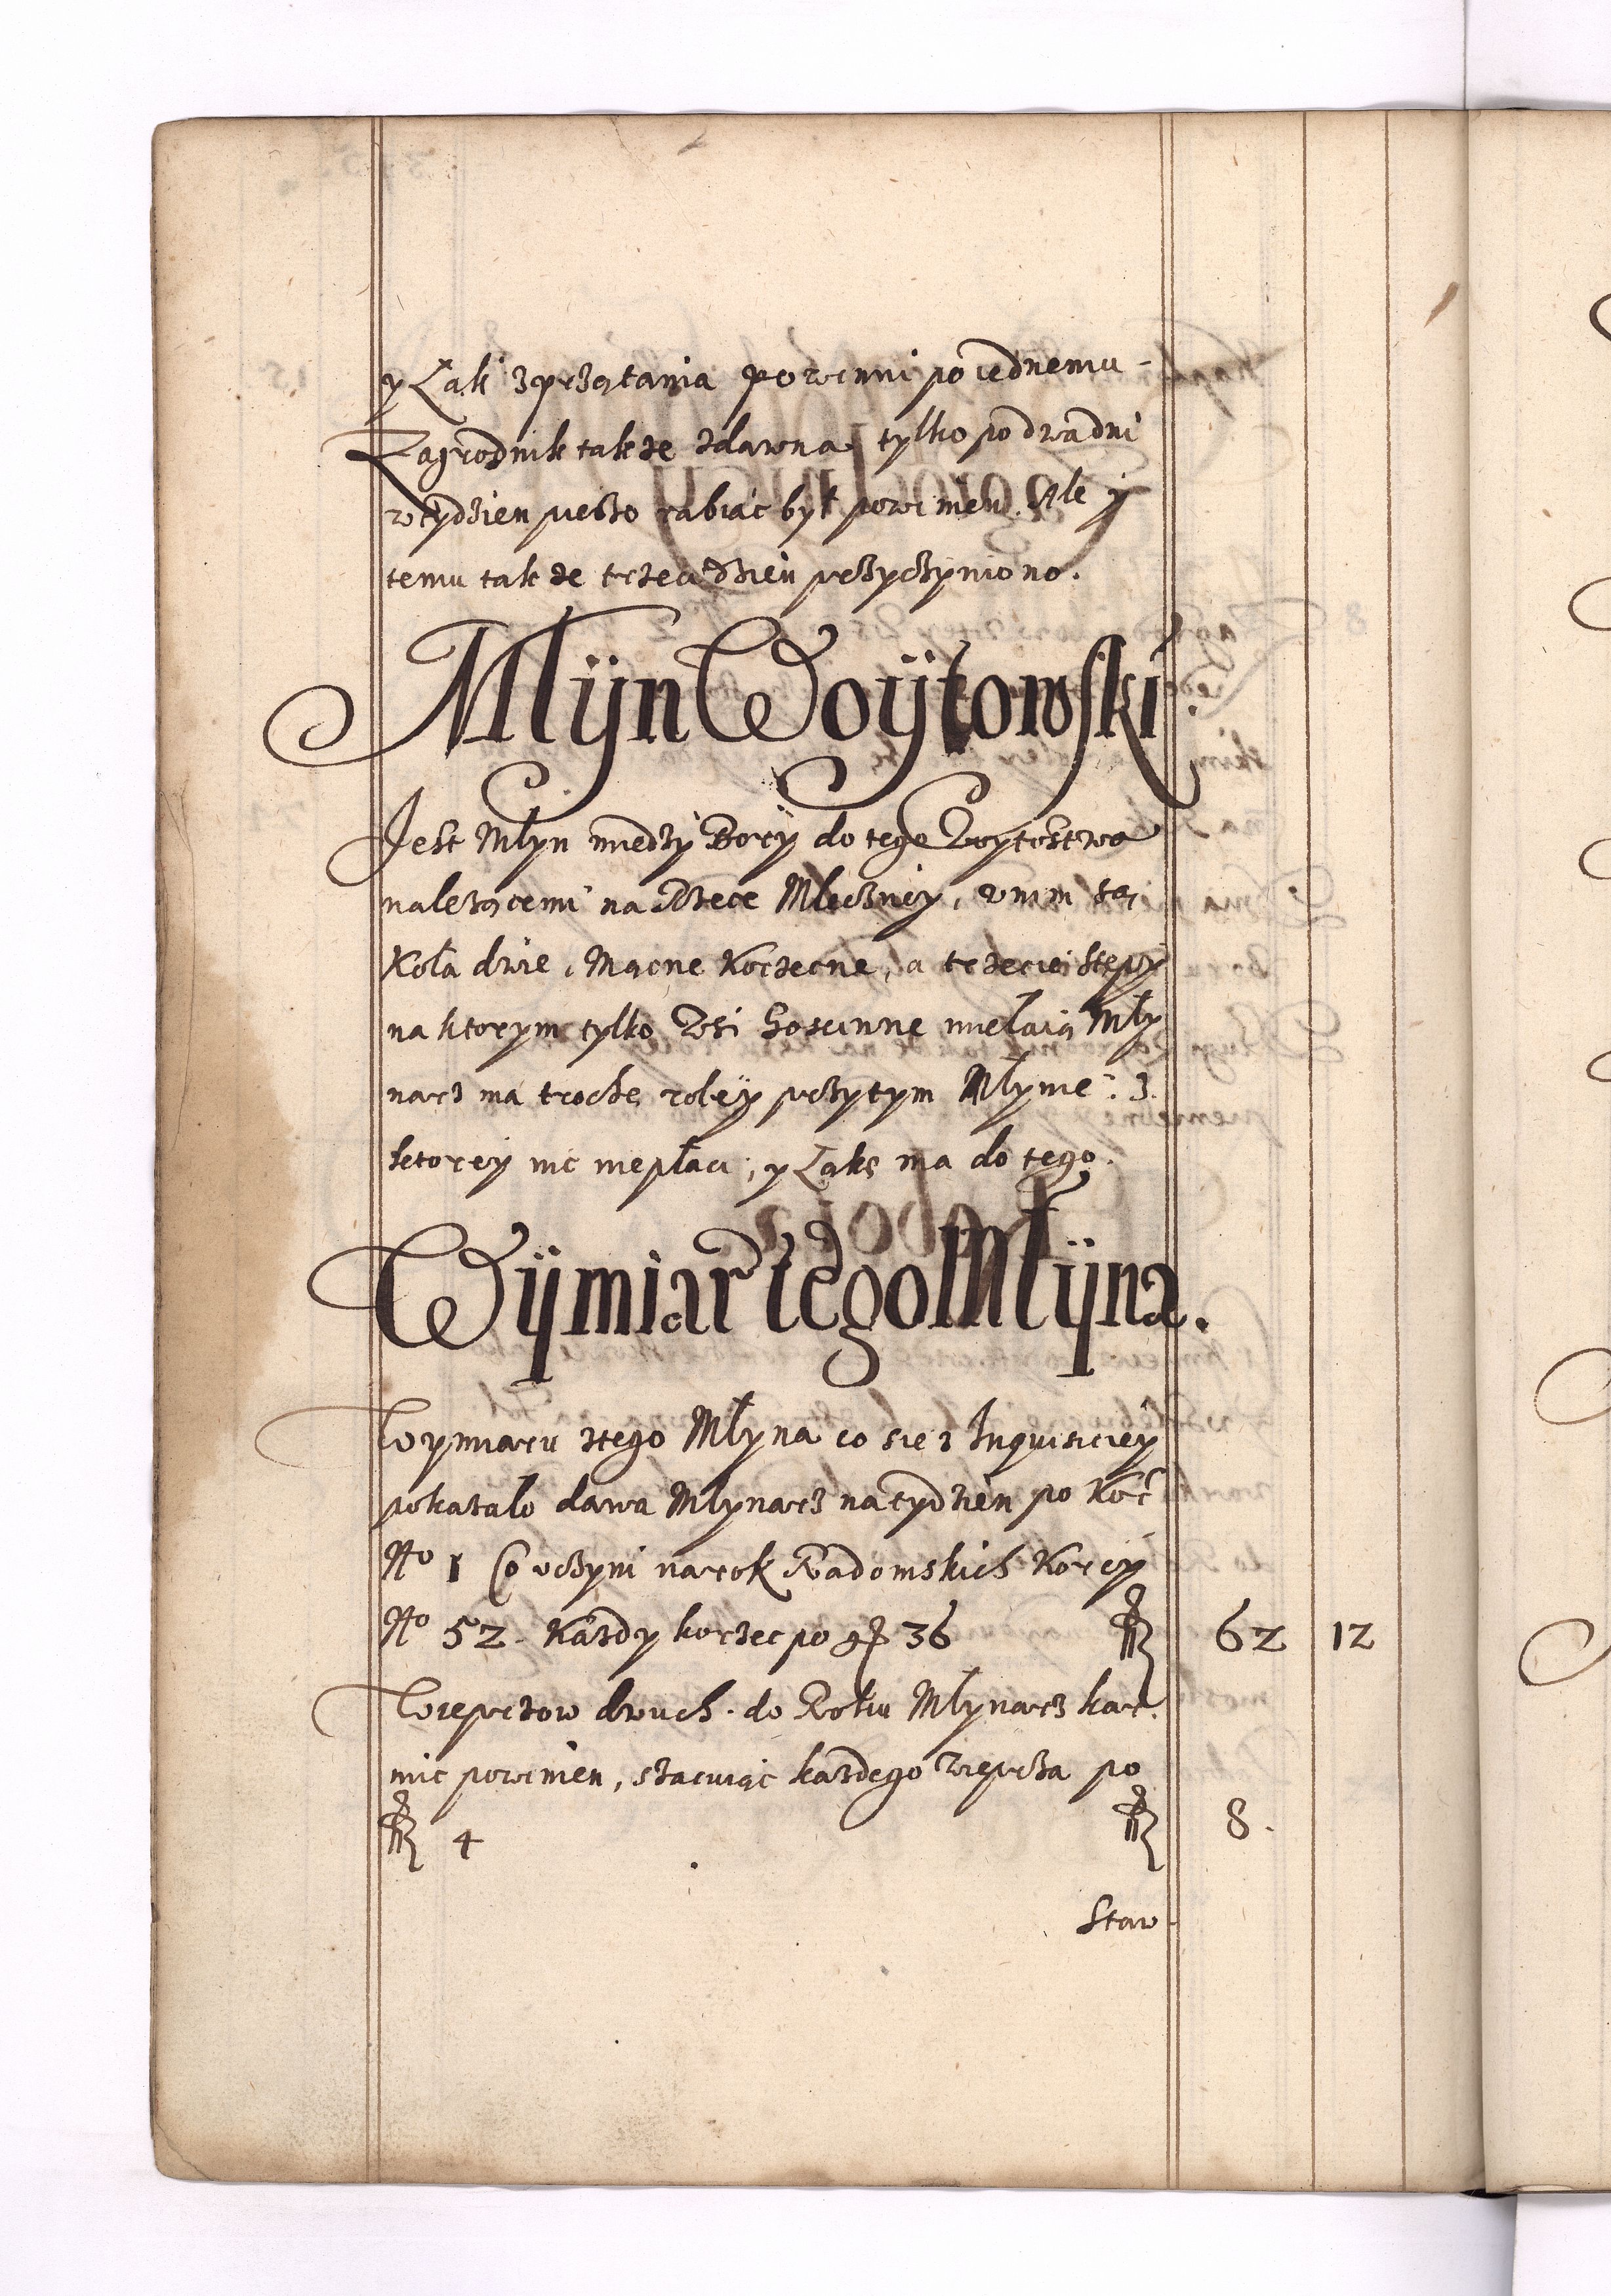 y Łąk zprzątania powinni po iednemu
Zagrodnik takze zdawna tylko po dwa dni
w tydzien pieszo rabiac był powinien. Ale y
temu takze trzeci dzien przyczyniono.
Młÿn Woÿtowski.
Jest Młyn miedzy Bory do tego Woytostwa
nalezącemi na Rzece Mleczney, w nim są
Koła dwie, Mączne Korzeczne, a trzecie stępy
na ktorym tylko Wsi Goscinne mielaią Mły
narz ma troche roley przytym Młynie: z
ktorey nic niepłaci, y Łąke ma do tego.
Wÿmiar tego Młÿna.
Wymiaru ztego Młyna co sie z Inquisiciey
pokazało dawa Młynarz na tydzien po Kor:
No 1 Co uczyni na rok Radomskich Korcy
No 52. Kazdy korzec po gr 36 fl 62 12
Wieprzow dwuch do Roku Młynarz kar
mic powinien, szacuiąc kazdego wieprza po
fl 4 fl 8.
Staw